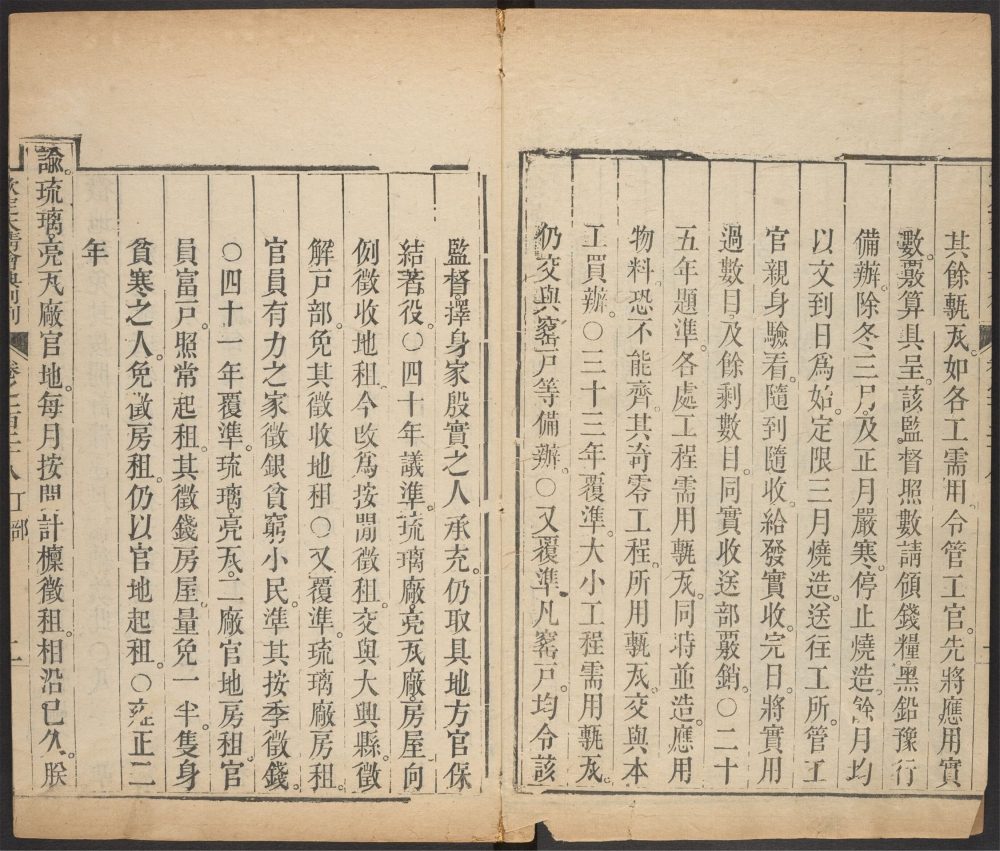 其餘甎瓦。如各工需用。令管工官。先將應用實
數。覈算具呈。該監督照數請領錢糧。黑鉛豫行
備辦。除冬三月。及正月嚴寒。停止燒造。餘月均
以文到日爲始。定限三月燒造。送往工所。管工
官親身驗看。隨到隨收。給發實收。完日將實用
過數目。及餘剩數目。同實收送部覈銷。〇二十
五年題準。各處工程需用甎瓦。同時並造。應用
物料。恐不能齊。其奇零工程所用甎瓦。交與本
工買辦。〇三十三年覆準。大小工程需用甎瓦。
仍交與窰戸等備辦。〇又覆準。凡窰戸。均令該
監督。擇身家殷實之人承充。仍取具地方官保
結著役。〇四十年議準。琉璃廠。亮瓦廠房屋。向
例徵收地租。今改爲按閒徵租。交與大興縣。徵
解戸部。免其徵收地租。〇又覆準。琉璃廠房租。
官員有力之家徵銀。貧窮小民。準其按季徵錢。
〇四十一年覆準。琉璃亮瓦。二廠官地房租。官
員富戸。照常起租。其徵錢房屋。量免一半。隻身
貧寒之人。免徵房租。仍以官地起租。〇雍正二
年
諭。琉璃亮瓦廠官地。每月按閒計檁徵租。相沿已久。朕
欽定大清會典則例 卷一百二十八 工部 二